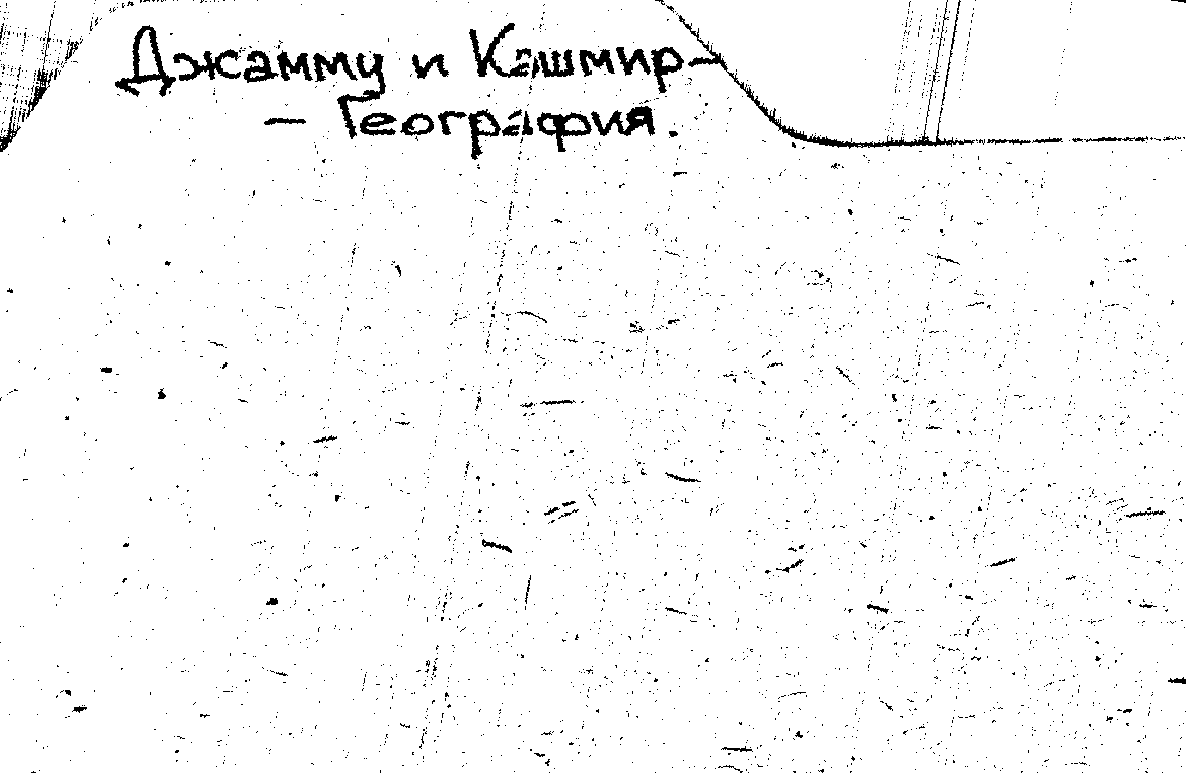 Джамму и Кашмир-
- География.